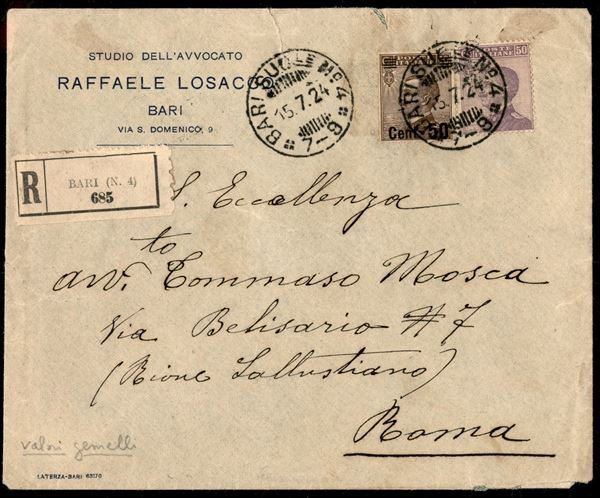 STUDIO DELL'AVVOCATO
RAFFAELE LOSACCO
BARI
VIA S. DOMENICO, 9
BARI SUCC. Nº 4
15.7.24
7-8
Cent. 50
BARI Nº 4
15.7.24
7-8
POSTE ITALIANE 50
R
BARI (N. 4)
685
S. Eccellenza
to
avv. Tommaso Mosca
Via Belisario # 7
(Rione Sallustiano)
Roma
valori gemelli
LATERZA-BARI 63170